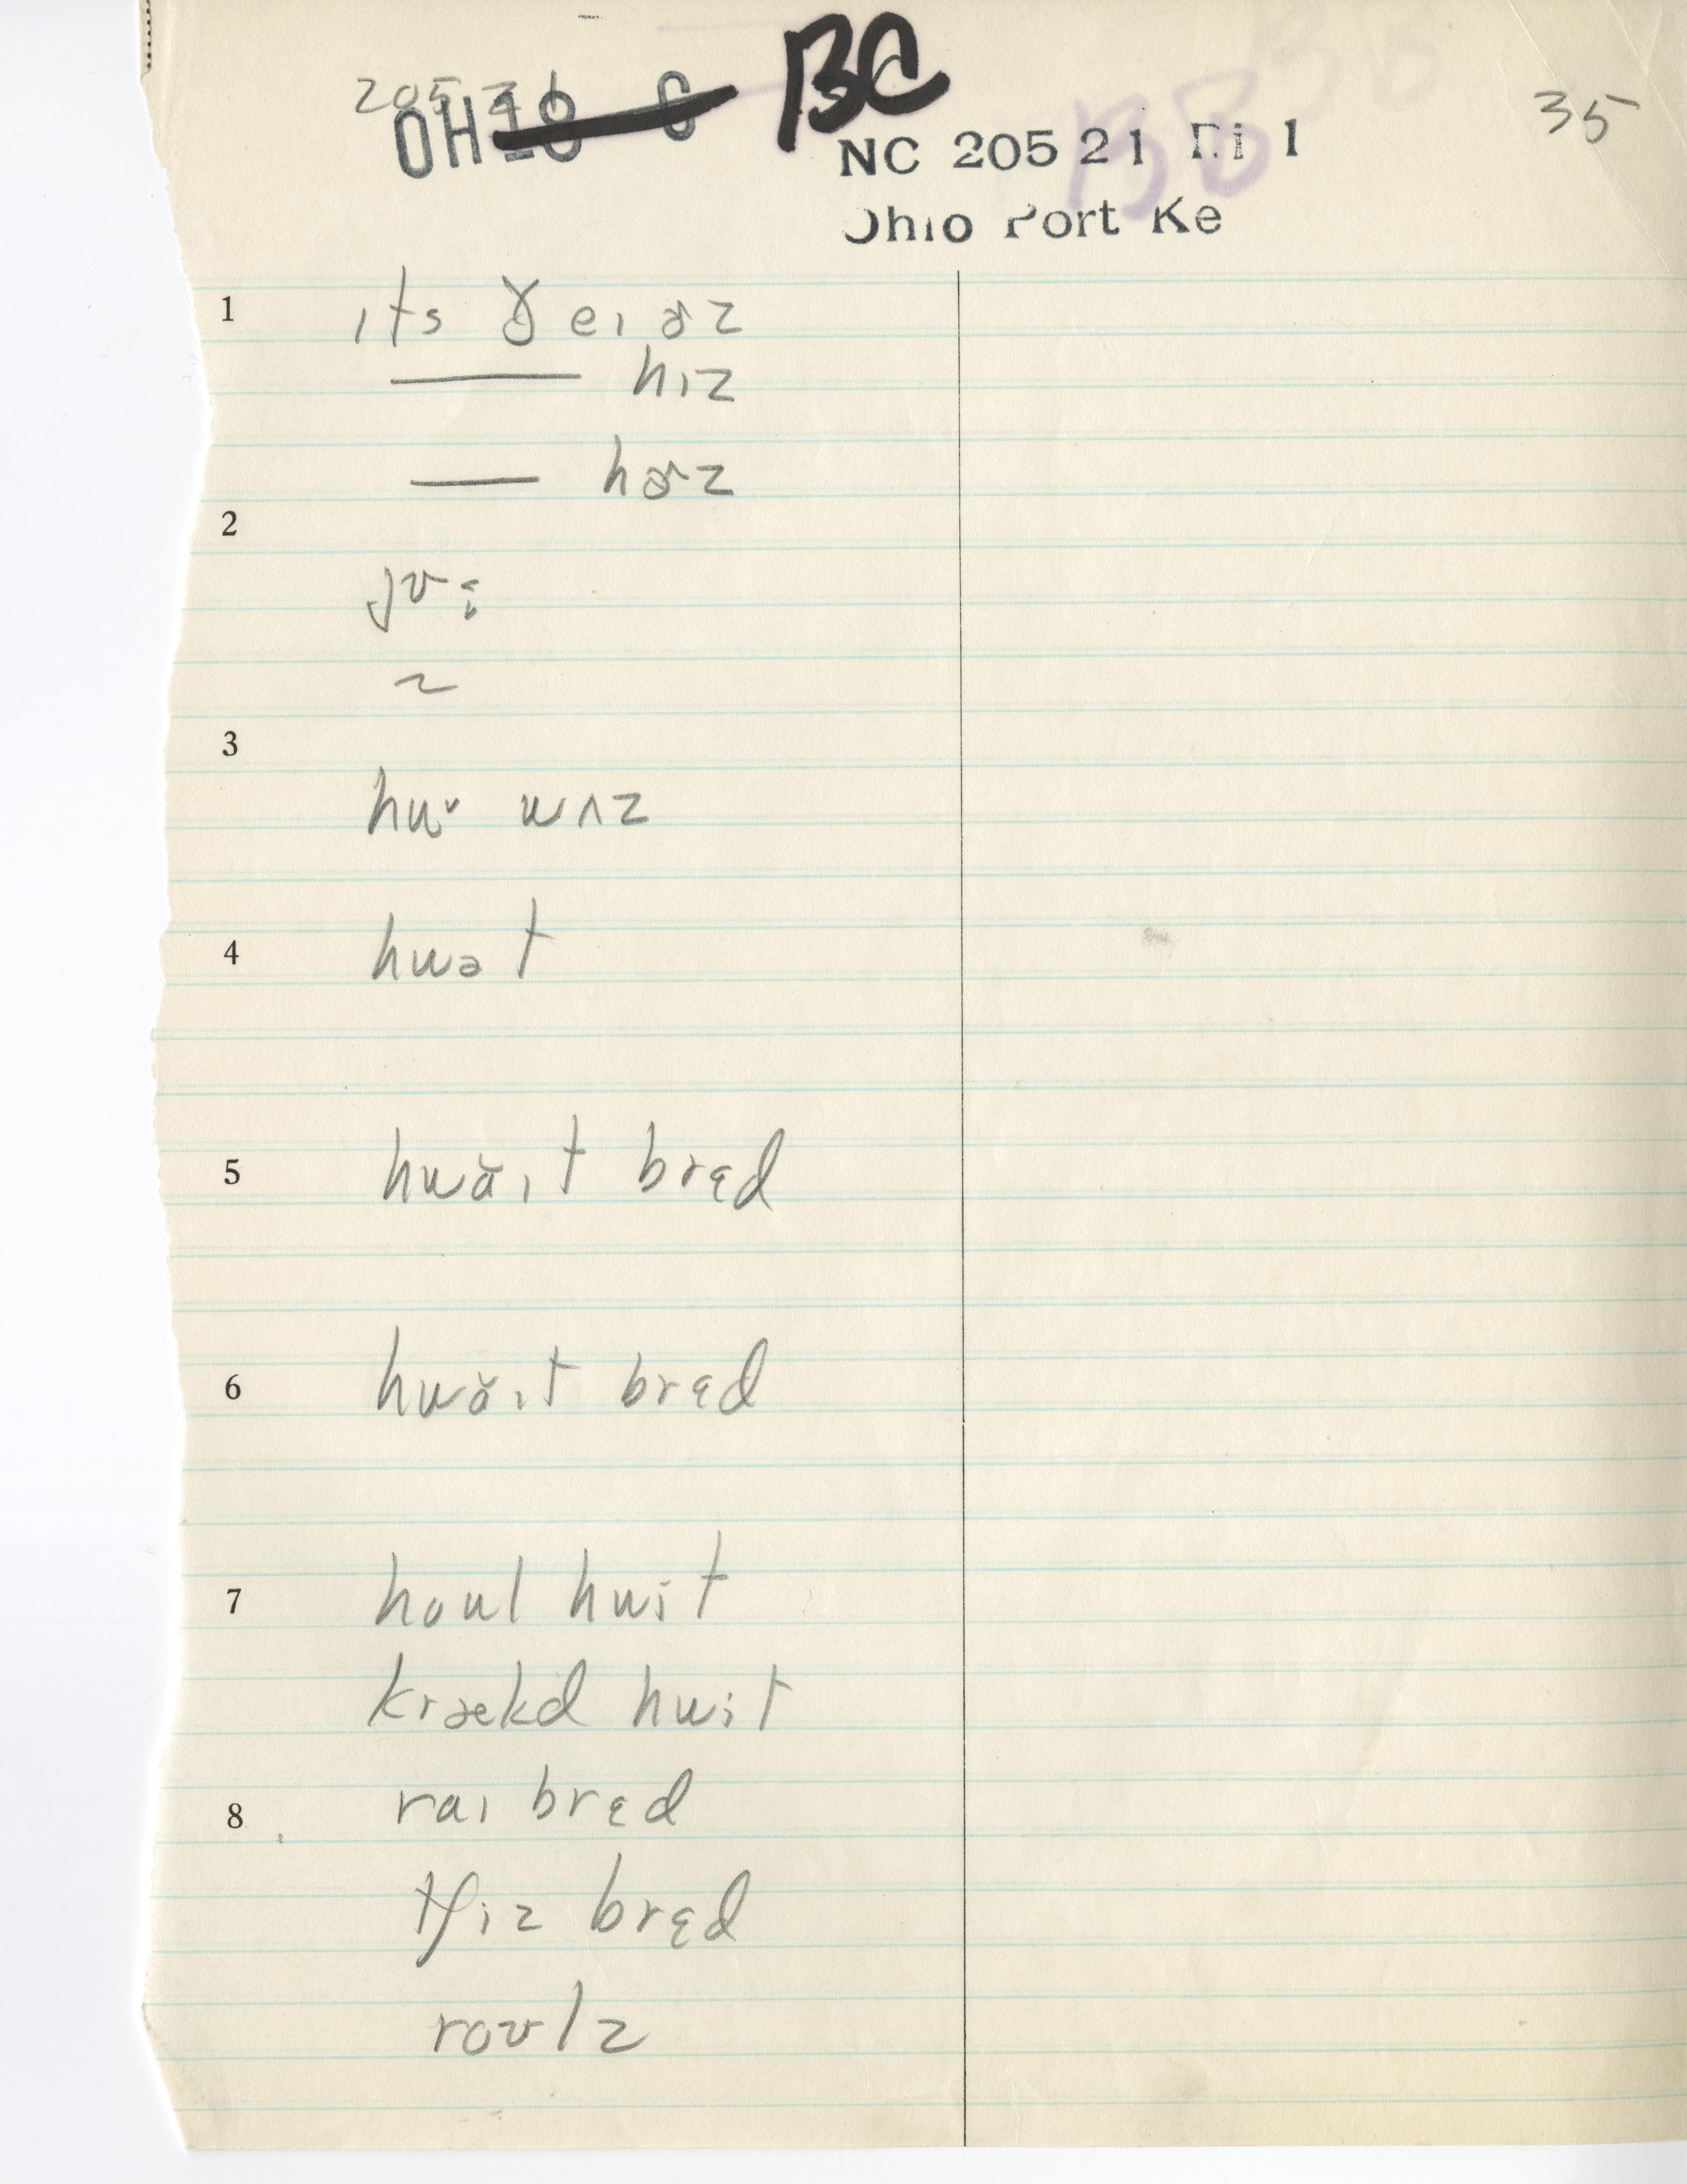 205 21
OH18 C BC
35
NC 205 21 Di 1
Ohio Port Ke
1 ɪts ɣeɪɚz
hɪz
hɚz
2 jʊ
3 hu wʌz
4 hwət
5 hwăɪt brɛd
6 hwăɪt brɛd
7 houl hwit
krækd hwit
8 raɪ brɛd
tʃiz brɛd
roʊlz